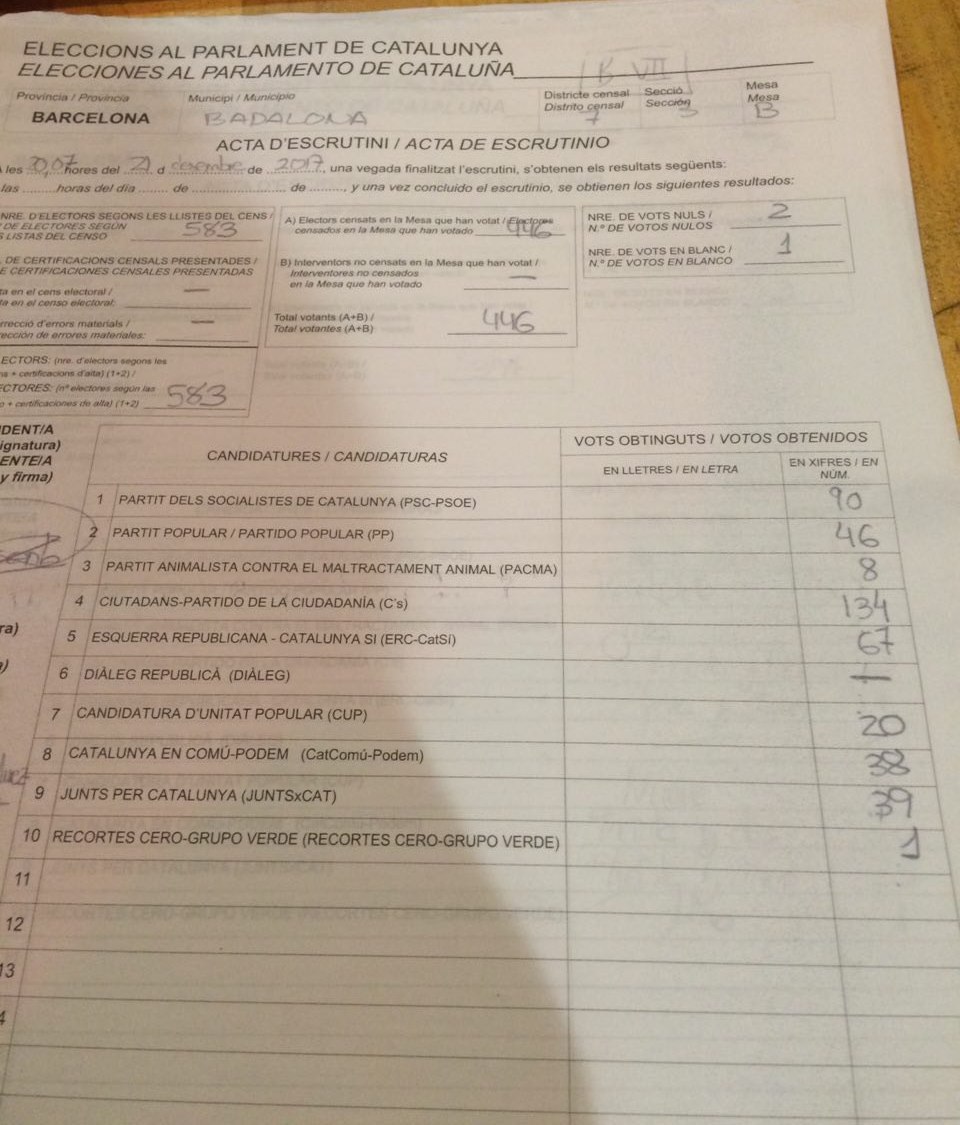 ELECCIONS AL PARLAMENT DE CATALUNYA
ELECCIONES AL PARLAMENTO DE CATALUÑA
B-VII
Província / Provincia
Municipi / Municipio
Districte censal
Distrito censal
Secció
Sección
Mesa
Mesa
BARCELONA
BADALONA
7
3
B
ACTA D'ESCRUTINI / ACTA DE ESCRUTINIO
les 20,07 hores del 21 d desembre de 2017, una vegada finalitzat l'escrutini, s'obtenen els resultats següents:
las ......... horas del día ........ de ................ de ........., y una vez concluido el escrutinio, se obtienen los siguientes resultados:
NRE. D'ELECTORS SEGONS LES LLISTES DEL CENS /
DE ELECTORES SEGÚN
LISTAS DEL CENSO
583
DE CERTIFICACIONS CENSALS PRESENTADES /
CERTIFICACIONES CENSALES PRESENTADAS
ta en el cens electoral / —
ta en el censo electoral:
rrecció d'errors materials / —
rección de errores materiales:
ECTORS: (nre. d'electors segons les
+ certificacions d'alta) (1+2) /
ECTORES: (nº electores según las
+ certificaciones de alta) (1+2) 583
A) Electors censats en la Mesa que han votat / Electores
censados en la Mesa que han votado 446
B) Interventors no censats en la Mesa que han votat /
Interventores no censados
en la Mesa que han votado —
Total votants (A+B) /
Total votantes (A+B) 446
NRE. DE VOTS NULS /
N.º DE VOTOS NULOS 2
NRE. DE VOTS EN BLANC /
N.º DE VOTOS EN BLANCO 1
IDENT/A
ignatura)
ENTE/A
y firma)
ra)
CANDIDATURES / CANDIDATURAS
VOTS OBTINGUTS / VOTOS OBTENIDOS
EN LLETRES / EN LETRA
EN XIFRES / EN
NÚM.
1 PARTIT DELS SOCIALISTES DE CATALUNYA (PSC-PSOE) 90
2 PARTIT POPULAR / PARTIDO POPULAR (PP) 46
3 PARTIT ANIMALISTA CONTRA EL MALTRACTAMENT ANIMAL (PACMA) 8
4 CIUTADANS-PARTIDO DE LA CIUDADANÍA (C's) 134
5 ESQUERRA REPUBLICANA - CATALUNYA SI (ERC-CatSí) 67
6 DIÀLEG REPUBLICÀ (DIÀLEG)
7 CANDIDATURA D'UNITAT POPULAR (CUP) 20
8 CATALUNYA EN COMÚ-PODEM (CatComú-Podem) 38
9 JUNTS PER CATALUNYA (JUNTSxCAT) 39
10 RECORTES CERO-GRUPO VERDE (RECORTES CERO-GRUPO VERDE) 1
11
12
13
4